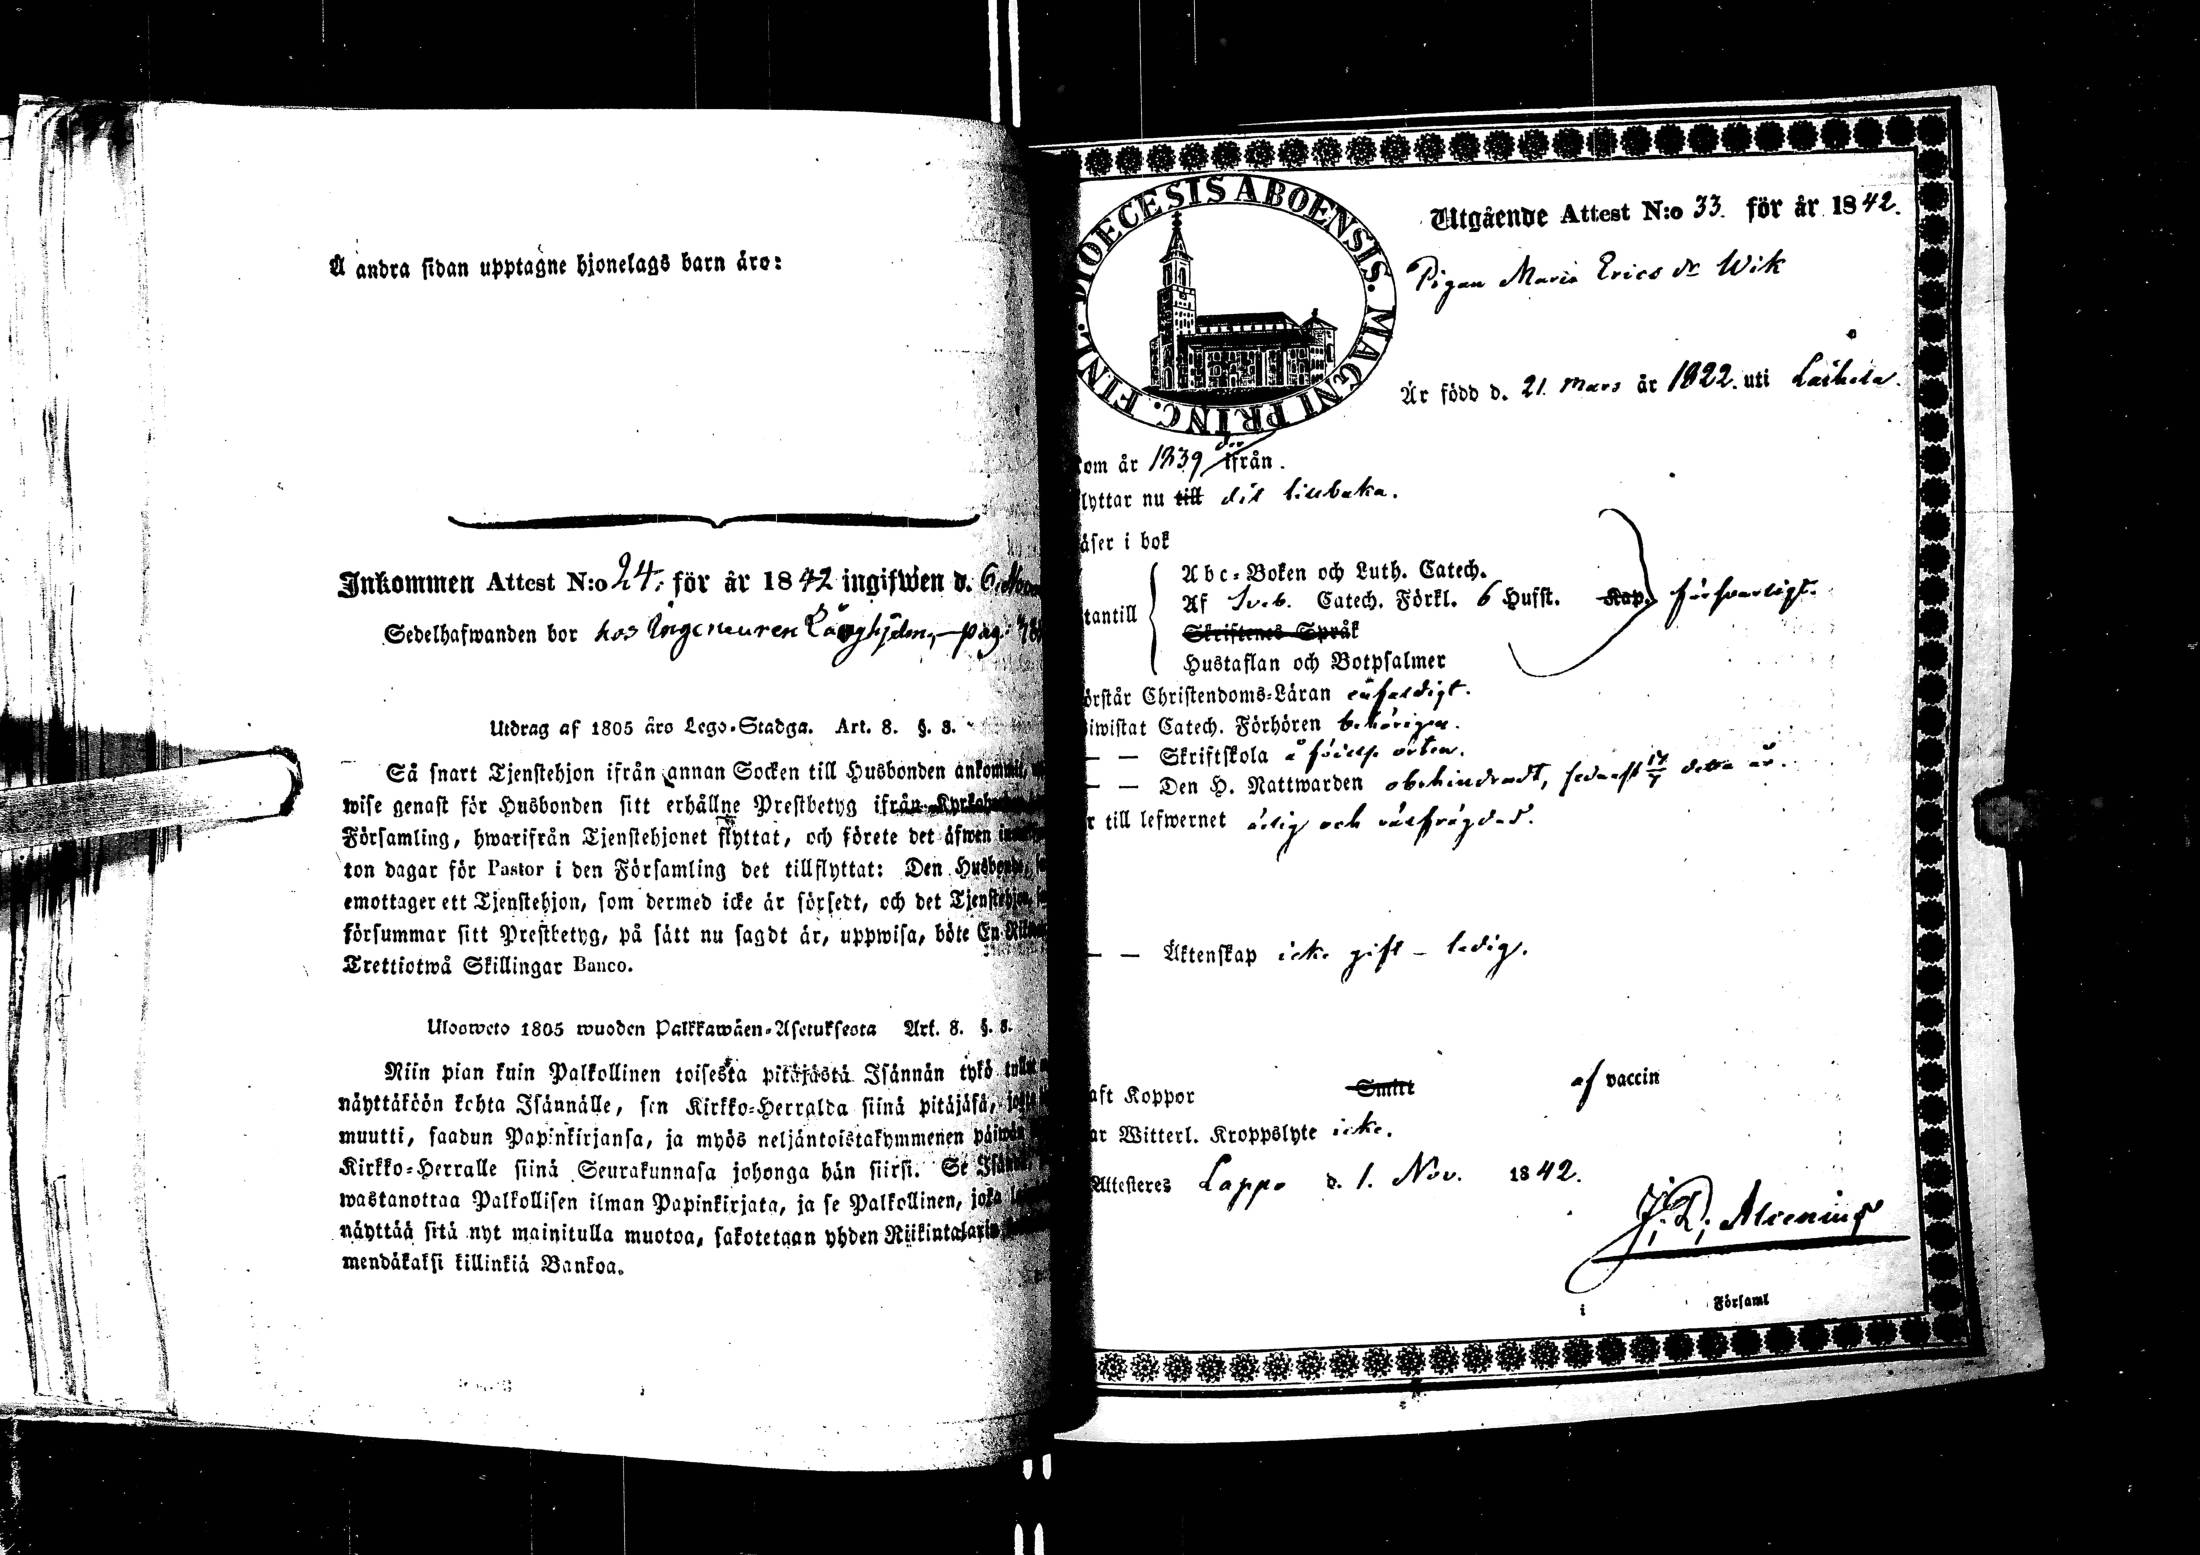 Å andra sidan upptagne hjonelags barn äro:
Inkommen Attest N:o 24. för år 1842 ingifwen d. 6.
Sedelhafwanden bor hos Ingenieuren Långhjelm, — pag:
Utdrag af 1805 års Lego-Stadga. Art. 8. §. 3.
Så snart Tjenstehjon ifrån annan Socken till Husbonden ankommit,
wise genast för Husbonden sitt erhållne Prestbetyg ifrån
Församling, hwarifrån Tjenstehjonet flyttat, och förete det äfwen
ton dagar för Pastor i den Församling det tillflyttat: Den Husbonde,
emottager ett Tjenstehjon, som dermed icke är försedt, och det Tjenstehjon,
försummar sitt Prestbetyg, på sätt nu sagdt är, uppwisa, böte En
Trettiotwå Skillingar Banco.
Ulosweto 1805 wuoden Palkkawäen-Asetuksesta Art. 8. §. 3.
Niin pian kuin Palkollinen toisesta pitäjästä Isännän tykö
näyttäköön kohta Isännälle, sen Kirkko-Herralda siinä pitäjäsä,
muutti, saadun Papinkirjansa, ja myös neljäntoistakymmenen
Kirkko-Herralle siinä Seurakunnasa johonga hän siirsi. Se
wastanottaa Palkollisen ilman Papinkirjata, ja se Palkollinen, joka
näyttää sitä nyt mainitulla muotoa, sakotetaan yhden Riikintalarin
mendäkaksi killinkiä Bankoa.
DIOECESIS ABOENSIS. MAGNI PRINC. FINL.
Utgående Attest N:o 33. för år 1842.
Pigan Maria Erics dr Wik
Är född d. 21. Mars år 1822. uti Laihela.
om år 1839 der ifrån.
lyttar nu till dit tillbaka.
äser i bok
tantill
Abc-Boken och Luth. Catech.
Af Sveb. Catech. Förkl. 6 Hufst. Kap. försvarligt.
Skriftenes Språk
Hustaflan och Botpsalmer
örstår Christendoms-Läran enfaldigt.
iwistat Catech. Förhören behörigen.
— — Skriftskola å födelse orten.
— — Den H. Nattwarden obehindradt, sednast 17/7 detta år.
r till lefwernet ärlig och välfrägdad.
— — Äktenskap icke gift – ledig.
aft Koppor Smitt af vaccin
ar Witterl. Kroppslyte icke.
Attesteres Lappo d. 1. Nov. 1842.
i Församl